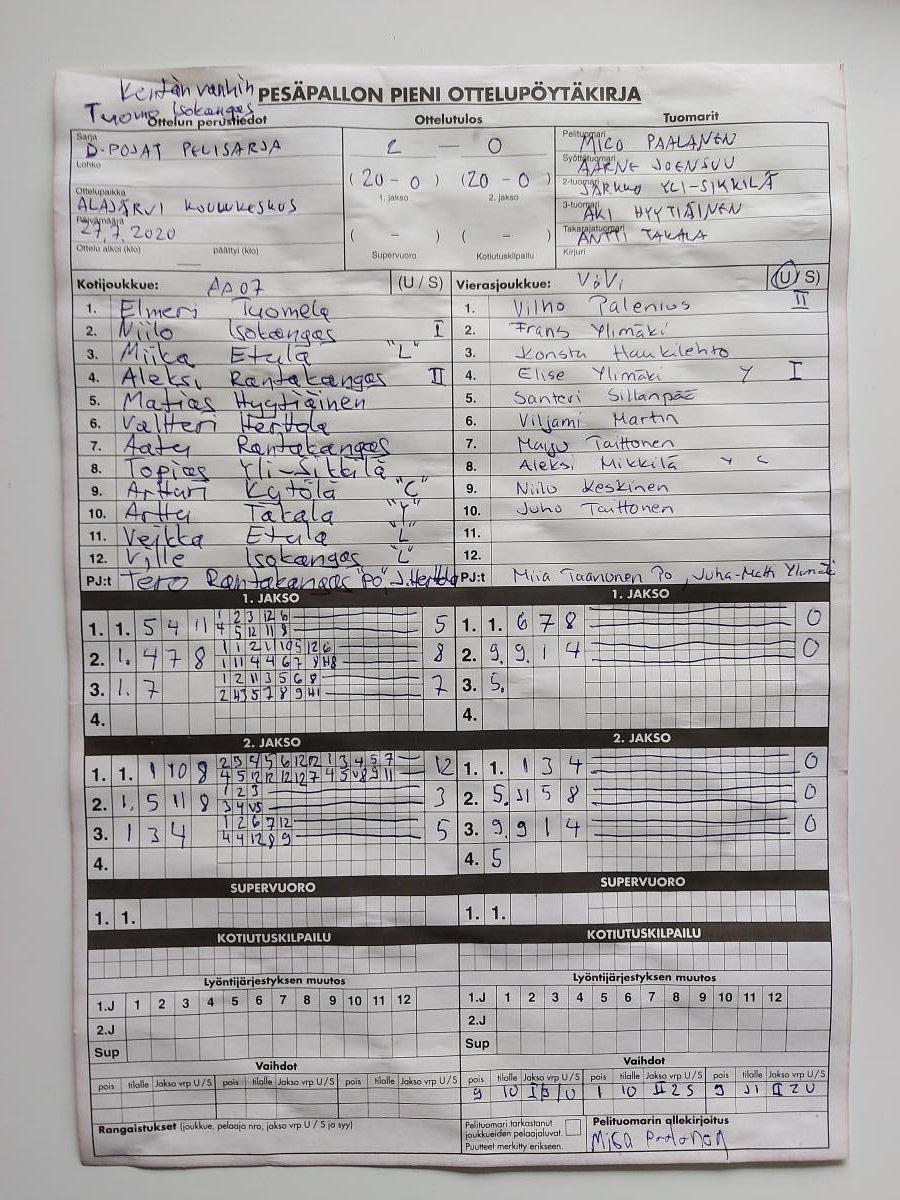 Kentän vanhin
Tuomo Isokangas
PESÄPALLON PIENI OTTELUPÖYTÄKIRJA
Ottelun perustiedot
Ottelutulos
Tuomarit
Sarja
D-POJAT PELISARJA
Lohko
Ottelupaikka
ALAJÄRVI KOULUKESKUS
Päivämäärä
27.7.2020
Ottelu alkoi (klo) päättyi (klo)
2 — 0
(20 - 0) (20 - 0)
1. jakso 2. jakso
( - ) ( - )
Supervuoro Kotiutuskilpailu
Pelituomari
MICO PAALANEN
Syöttötuomari
AARNE JOENSUU
2-tuomari
JARKKO YLI-SIKKILÄ
3-tuomari
AKI HYYTIÄINEN
Takarajatuomari
ANTTI TAKALA
Kirjuri
Kotijoukkue: AA07 (U / S)
1. Elmeri Tuomela
2. Niilo Isokangas I
3. Miika Etula "L"
4. Aleksi Rantakangas II
5. Matias Hyytiäinen
6. Valtteri Herttola
7. Aatu Rantakangas
8. Topias Yli-Sikkilä
9. Artturi Kytölä "C"
10. Arttu Takala "Y"
11. Veikka Etula L
12. Ville Isokangas "L"
PJ:t Tero Rantakangas "PO", J. Herttola
Vierasjoukkue: ViVi (U / S)
1. Vilho Palenius II
2. Frans Ylimäki
3. Konsta Haukilehto
4. Elise Ylimäki Y I
5. Santeri Sillanpää
6. Viljami Martin
7. Maiju Taittonen
8. Aleksi Mikkilä Y C
9. Niilo Keskinen
10. Juho Taittonen
11.
12.
PJ:t Miia Taanonen Po, Juha-Matti Ylimäki
1. JAKSO
1. 1. 5 4 11 5
1 2 3 12 6
4 5 12 11 8
2. 1. 4 7 8 8
3. 1. 7 7
1 2 11 3 5 6 8
4.
1. JAKSO
1. 1. 6 7 8 0
2. 9. 9 1 4 0
3. 5.
4.
2. JAKSO
1. 1. 1 10 8 12
2 3 4 5 6 12 12 1 3 4 5 7
2. 1. 5 11 8 3
1 2 3
3. 1 3 4 5
1 2 6 7 12
4 4 12 8 9
4.
2. JAKSO
1. 1. 1 3 4 0
2. 5. 11 5 8 0
3. 9. 9 1 4 0
4. 5
SUPERVUORO
1. 1.
SUPERVUORO
1. 1.
KOTIUTUSKILPAILU
KOTIUTUSKILPAILU
Lyöntijärjestyksen muutos
1.J 1 2 3 4 5 6 7 8 9 10 11 12
2.J
Sup
Lyöntijärjestyksen muutos
1.J 1 2 3 4 5 6 7 8 9 10 11 12
2.J
Sup
Vaihdot
pois tilalle Jakso vrp U / S pois tilalle Jakso vrp U / S pois tilalle Jakso vrp U / S
Vaihdot
pois tilalle Jakso vrp U / S pois tilalle Jakso vrp U / S pois tilalle Jakso vrp U / S
9 10 I 3 U 1 10 II 2 S 9 11 II 2 U
Rangaistukset (joukkue, pelaaja nro, jakso vrp U / S ja syy)
Pelituomari tarkastanut
joukkueiden pelaajaluvat.
Puutteet merkitty erikseen.
Pelituomarin allekirjoitus